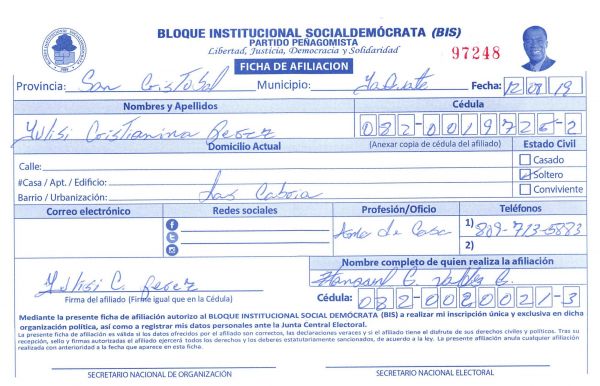 BLOQUE INSTITUCIONAL SOCIALDEMÓCRATA (BIS)
PARTIDO PEÑAGOMISTA
Libertad, Justicia, Democracia y Solidaridad
97248
FICHA DE AFILIACION
Provincia: San Cristobal Municipio: Yaguate Fecha: 12 08 19
Nombres y Apellidos Cédula
Yulisi Cristianina Perez 082-0019726-2
Domicilio Actual (Anexar copia de cédula del afiliado) Estado Civil
Calle: Casado
#Casa / Apt. / Edificio: Soltero
Barrio / Urbanización: Las Conviviente
Correo electrónico Redes sociales Profesión/Oficio Teléfonos
Ama de Casa 1) 809-713-5883
2)
Nombre completo de quien realiza la afiliación
Yulisi C. Perez
Firma del afiliado (Firme igual que en la Cédula) Cédula: 082-0020021-3
Mediante la presente ficha de afiliación autorizo al BLOQUE INSTITUCIONAL SOCIAL DEMÓCRATA (BIS) a realizar mi inscripción única y exclusiva en dicha
organización política, así como a registrar mis datos personales ante la Junta Central Electoral.
La presente ficha de afiliación es válida si los datos ofrecidos por el afiliado son correctos, las declaraciones veraces y si el afiliado tiene el disfrute de sus derechos civiles y políticos. Tras su
recepción, sello y firmas autorizadas el afiliado ejercerá todos los derechos y los deberes estatutariamente sancionados, de acuerdo a la ley. La presente afiliación anula cualquier afiliación
realizada con anterioridad a la fecha que aparece en esta ficha.
SECRETARIO NACIONAL DE ORGANIZACIÓN SECRETARIO NACIONAL ELECTORAL